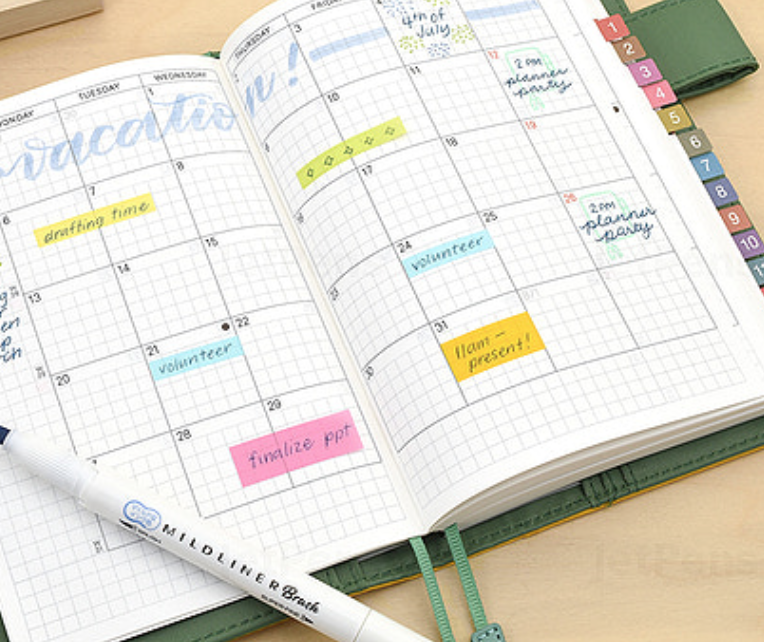 MONDAY
TUESDAY
WEDNESDAY
vacation!
1
6
7
8
drafting time
13
14
15
20
21
22
volunteer
28
29
finalize ppt
THURSDAY
3
4th of
July
10
11
12
2 PM
planner
party
17
18
19
24
25
26
volunteer
2 PM
planner
party
30
31
11am -
present!
1
2
3
4
5
6
7
8
9
10
11
MILDLINER Brush